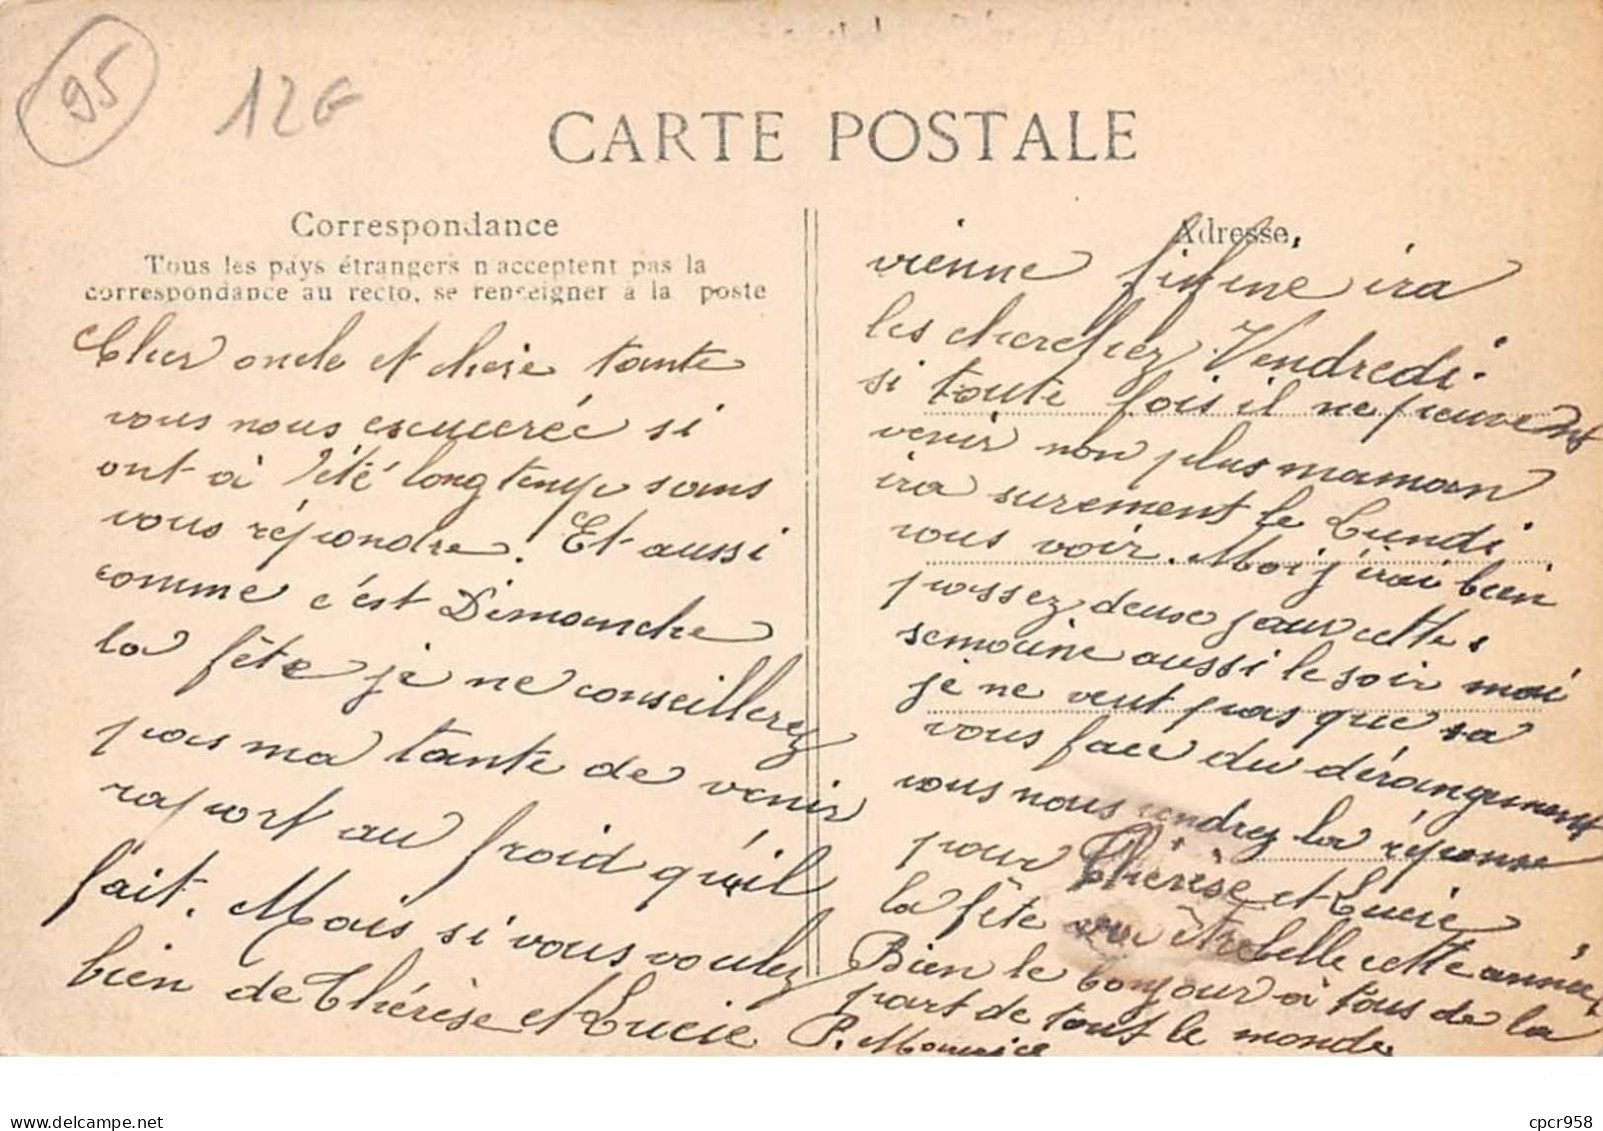 95
12G
CARTE POSTALE
Correspondance
Tous les pays étrangers n'acceptent pas la
correspondance au recto, se renseigner à la poste
Cher oncle et chère tante
vous nous excuceréc si
ont à été longtemps sans
vous répondre. Et aussi
comme c'est Dimanche
la fête je ne conseillerez
pas ma tante de venir
raport au froid qu'il
fait. Mais si vous voulez
bien de Thérèse et Lucie
Adresse
vienne fifine ira
les cherchez Vendredi.
si toute fois il ne peuvent
venir non plus maman
ira surement le Lundi
vous voir. Moi j'irai bien
passez deux jour cette
semaine aussi le soir moi
je ne veut pas que sa
vous face du dérangement
vous nous rendrez la réponse
pour Thérèse et Lucie
la fête va être belle cette année
Bien le bonjour à tous de la
part de tout le monde
P. Maurice
delcampe.net
cpcr958